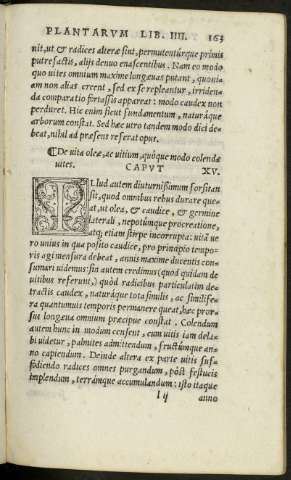 PLANTARVM LIB. IIII. 163
nit, ut & radices alteræ sint, permutentúrque primis
putrefactis, alijs denuo enascentibus. Nam eo modo
quo uites omnium maxime longæuas putant, quoni-
am non alias crescit, sed ex se repleantur, irriden-
da comparatio fortassis appareat: modo caudex non
perduret. Hic enim sicut fundamentum, naturáque
arborum constat. Sed hæc utro tandem modo dici de-
beat, nihil ad præsens referat opus.
De uita oleæ, ac uitium, quóque modo colendæ
uites. CAPVT XV.
ILlud autem diuturnissimum forsitan
sit, quod omnibus rebus durare que-
at, ut olea, & caudice, & germine
laterali, nepotúmque procreatione,
atq; etiam stirpe incorrupta: uitã ue
ro unius in qua posito caudice, pro principio tempo-
ris agi mensura debeat, annis maxime ducentis con-
sumari uidemus: sin autem credimus (quod quidam de
uitibus referunt) quòd radicibus particulatim de-
tractis caudex, naturáque tota similis, ac similife-
ra quantumuis temporis permanere queat, hæc pror-
sus longæua omnium præcipue constat. Colendum
autem hunc in modum censent, cum uitis iam dela-
bi uidetur, palmites admittendum, fructúmque an-
no capiendum. Deinde altera ex parte uitis suf-
fodiendo radices omnes purgandum, póst festucis
implendum, terrámque accumulandum: isto itaque
l ij anno